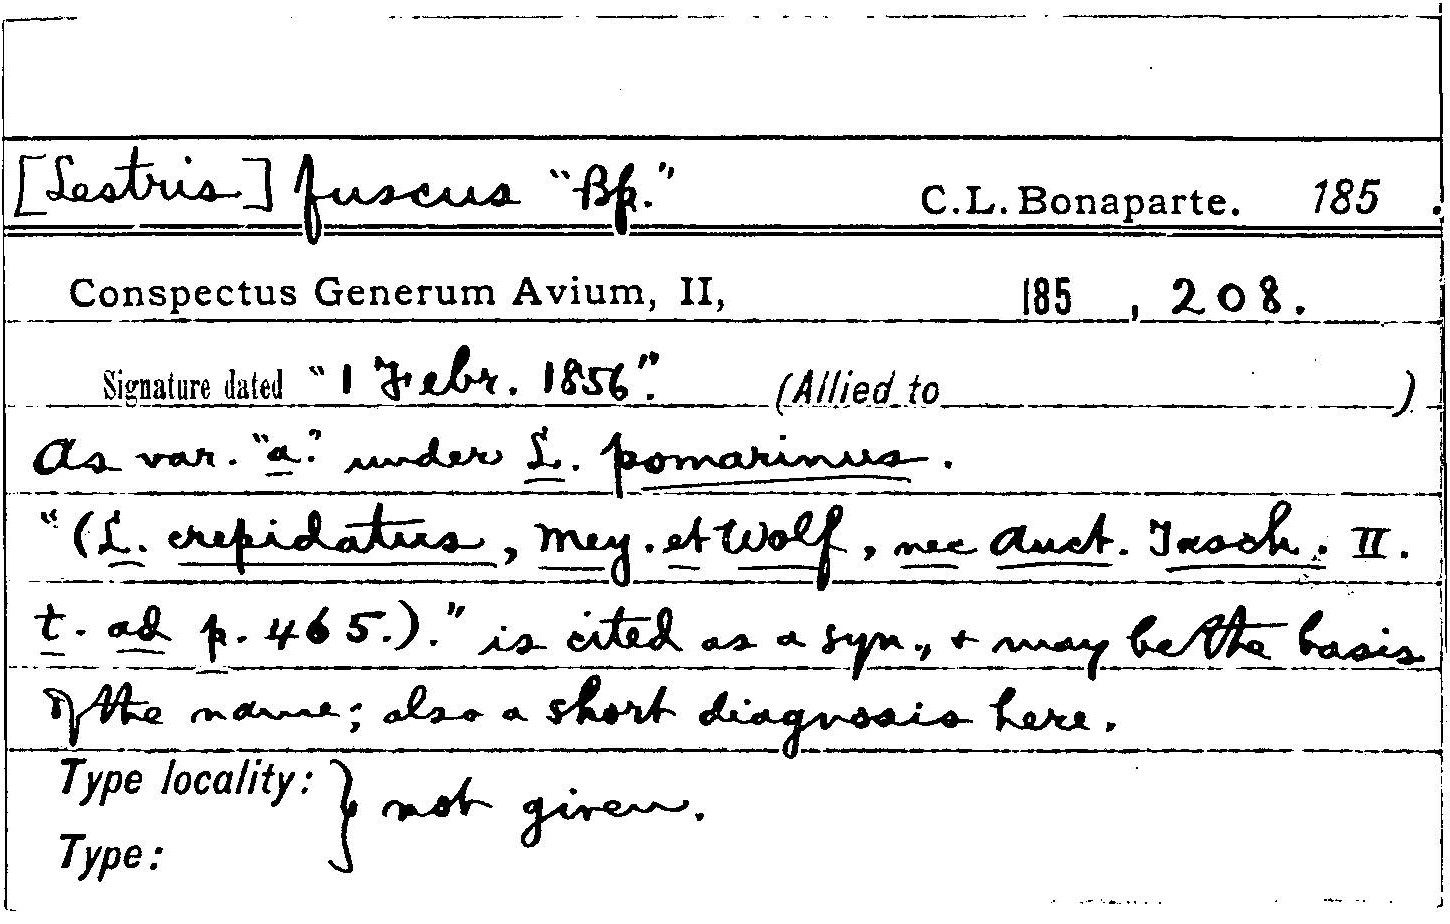 [Lestris] fuscus "Bp." C.L. Bonaparte. 185 .
Conspectus Generum Avium, II, 185 , 208.
Signature dated "1 Febr. 1856". (Allied to )
As var. "a." under L. pomarinus.
"(L. crepidatus, Mey. et Wolf, nec Auct. Tasch. II.
t. ad p. 465.)." is cited as a syn., + may be the basis
of the name; also a short diagnosis here.
Type locality: } not given.
Type: